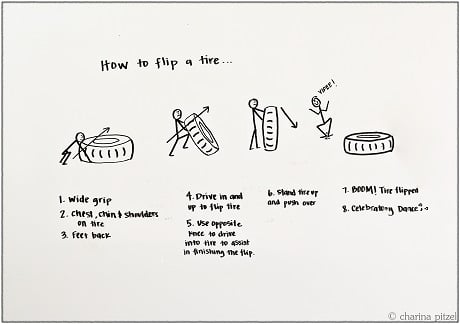 How to flip a tire...
YIPEE!
1. Wide grip
2. Chest, chin & shoulders
on tire
3. Feet back
4. Drive in and
up to flip tire
5. Use opposite
knee to drive
into tire to assist
in finishing the flip.
6. Stand tire up
and push over
7. BOOM! Tire flipped
8. Celebratory Dance
© charina pitzel